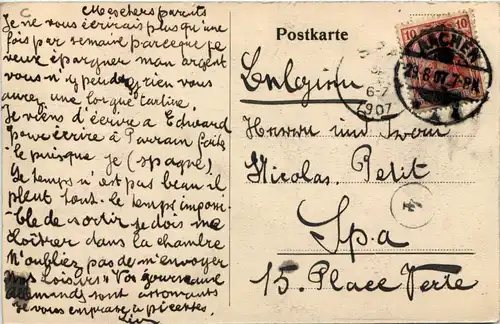 Mes chers parents
Je ne vous écrirais plus qu'une
fois par semaine parceque je
veux épargner mon argent
vous n'y perdez rien vous
aurez une longue tartine.
Je viens d'écrire à Edward
pour écrire à Parrain
le puisque je (spagne)
Le temps n'est pas beau il
pleut tout le temps impossi-
-ble de sortir je dois me
cloîtrer dans la chambre
N'oubliez pas de m'envoyer
"Nos Loisirs" Vos
allemands sont
Je vous embrasse
Postkarte
10 10
AACHEN
29.6.07. 7-8N.
Belgien
6-7
1907
Herrn und Frau
Nicolas Petit
4
Spa
15. Place Verte